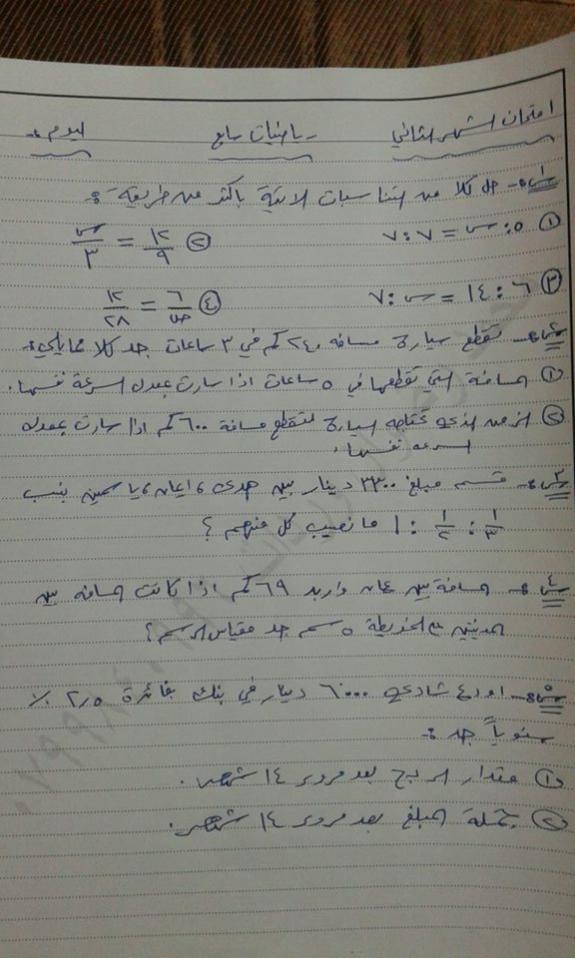 امتحان الشهر الثاني رياضيات سابع اليوم :
س١:- حل كلا من التناسبات الاتية باكثر من طريقة :
① ٥ : س = ٧ : ٧ ② ١٢/٩ = س/٣
③ ٦ : ١٤ = س : ٧ ④ ٦/ص = ١٢/٢٨
س٢:- تقطع سيارة مسافة ٢٤٠ كم في ٣ ساعات جد كلا مما يلي :
① المسافة التي تقطعها في ٥ ساعات اذا سارت بمعدل السرعة نفسها .
② الزمن الذي تحتاجه السيارة لتقطع مسافة ٦٠٠ كم اذا سارت بمعدل
السرعة نفسها .
س٣:- قسم مبلغ ٣٣٠٠ دينار بين هدى ، ايمان ، ياسمين بنسب
١/٣ : ١/٢ : ١ ما نصيب كل منهم ؟
س٤:- المسافة بين عمان واربد ٦٩ كم اذا كانت المسافة بين
المدينتين على الخريطة ٥ سم جد مقياس الرسم ؟
س٥:- اودع شادي ٦٠٠٠ دينار في بنك بفائدة ٢٫٥ ٪
سنوياً جد :-
① مقدار الربح بعد مرور ١٤ شهر .
② جملة المبلغ بعد مرور ١٤ شهر .